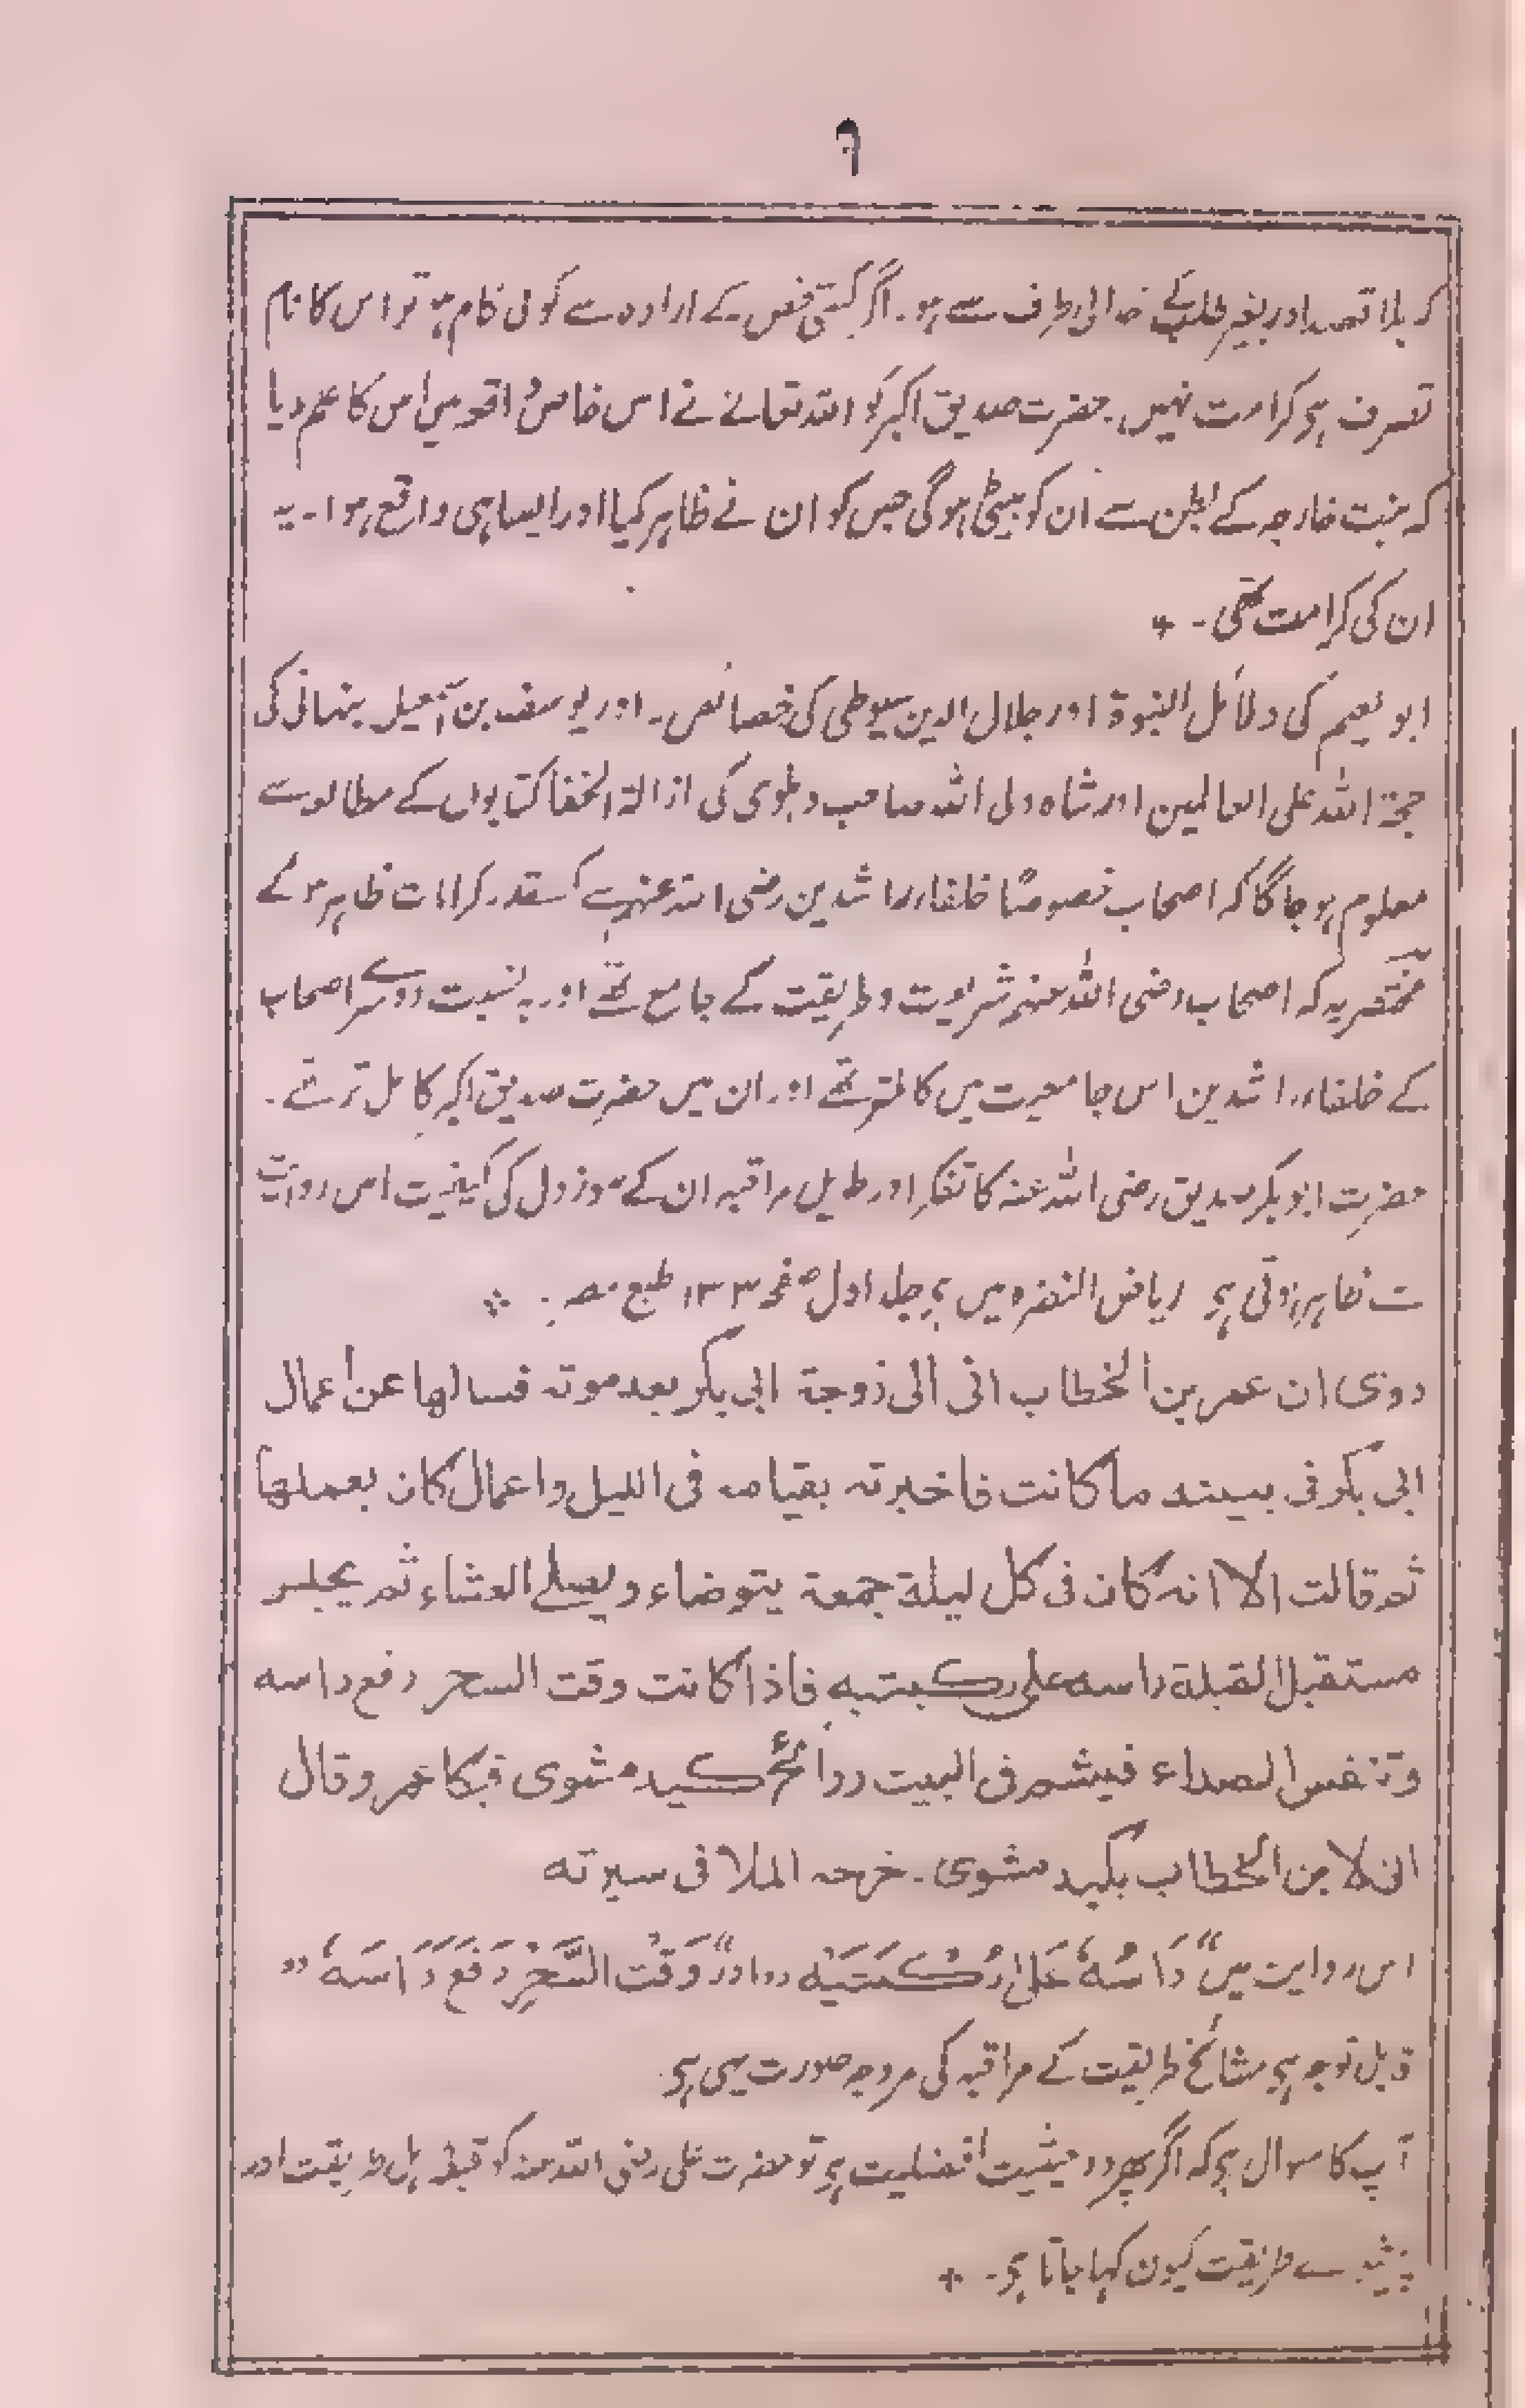 ٦
کہ بلا قصد اور بغیر طلب کے خدا کی طرف سے ہو۔ اگر کسی شخص کے ارادہ سے کوئی کام ہو تو اس کا نام
تصرف ہی کرامت نہیں۔ حضرت صدیق اکبر کو اللہ تعالے نے اس خاص واقعہ میں اس کا علم دیا
کہ بنت خارجہ کے بطن سے ان کو بیٹی ہوگی جس کو ان نے ظاہر کیا اور ایسا ہی واقع ہوا۔ یہ
ان کی کرامت تھی۔
ابو نعیم کی دلائل النبوۃ اور جلال الدین سیوطی کی خصائص۔ اور یوسف بن اسمعیل بنہانی کی
حجۃ اللہ علی العالمین اور شاہ ولی اللہ صاحب دہلوی کی ازالۃ الخفا کتابوں کے مطالعہ سے
معلوم ہو جاگا کہ اصحاب خصوصًا خلفاء راشدین رضی اللہ عنہم سے کسقدر کرامات ظاہر ہوئے
مختصر یہ کہ اصحاب رضی اللہ عنہم شریعت و طریقیت کے جامع تھے اور بہ نسبت دوسرے اصحاب
کے خلفاء راشدین اس جامعیت میں کاملتر تھے اور ان میں حضرت صدیق اکبر کامل تر تھے۔
حضرت ابو بکر صدیق رضی اللہ عنہ کا تفکر اور طویل مراقبہ ان کے سوز دل کی کیفیت اس روایت
سے ظاہر ہوتی ہی ریاض النضرہ میں ہی جلد اول صفحہ ۱۳۳ طبع مصر
روی ان عمر بن الخطاب اتی الی زوجۃ ابی بکر بعد موتہ فسالھا عن اعمال
ابی بکر فی بیتہ ما کانت فاخبرتہ بقیامہ فی اللیل واعمال کان یعملھا
ثم قالت الا انہ کان فی کل لیلۃ جمعۃ یتوضاء ویصلے العشاء ثم یجلس
مستقبل القبلۃ راسہ علی رکبتیہ فاذا کانت وقت السحر رفع راسہ
وتنفس الصداء فیشم فی البیت روائح کبد مشوی فبکا عمر وقال
انی لابن الخطاب بکبد مشوی۔ خرجہ الملا فی سیرتہ
اس روایت میں ”رَاسُہٗ عَلیٰ رُکْبَتَیْہِ“ اور ”وَقْت السَّحَرِ رَفَعَ رَاسَہٗ“
قابل توجہ ہی مشائخ طریقیت کے مراقبہ کی مروجہ صورت یہی ہی
آپ کا سوال ہی کہ اگر بہر دو حیثیت افضلیت ہی تو حضرت علی رضی اللہ عنہ کو طریقت اور
سے طریقت کیون کہا جاتا ہی۔